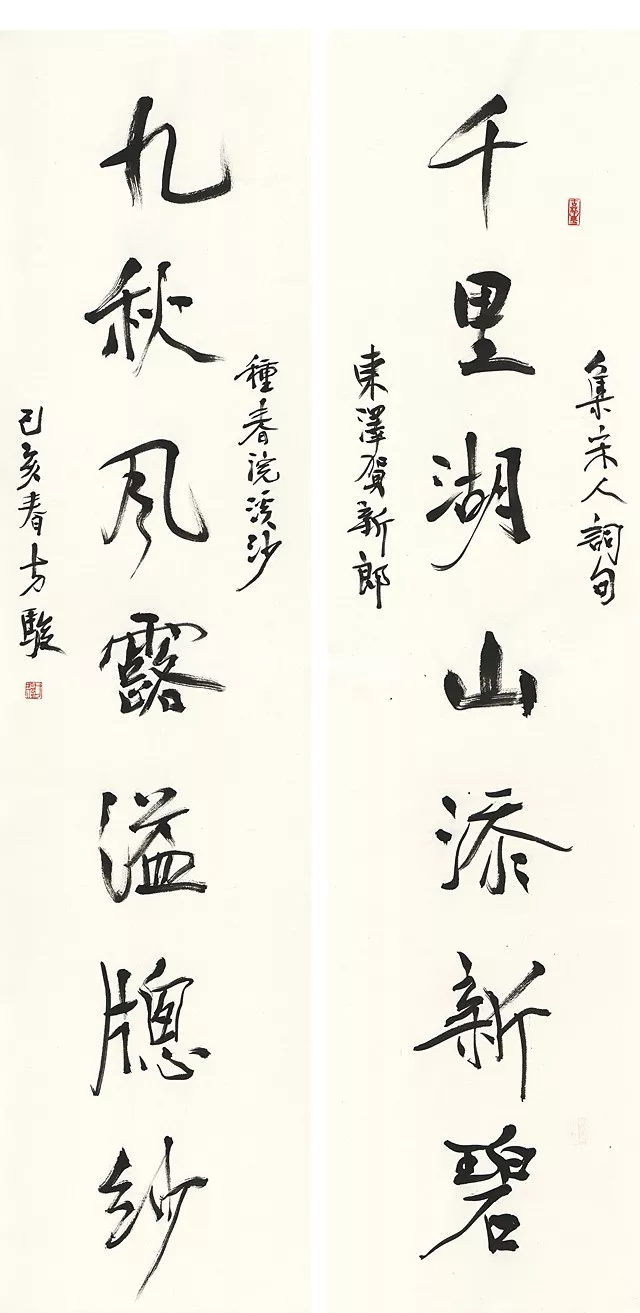 集宋人詞句
千里湖山添新碧
東澤賀新郎
種春浣溪沙
九秋風露溢牕紗
己亥春方駿